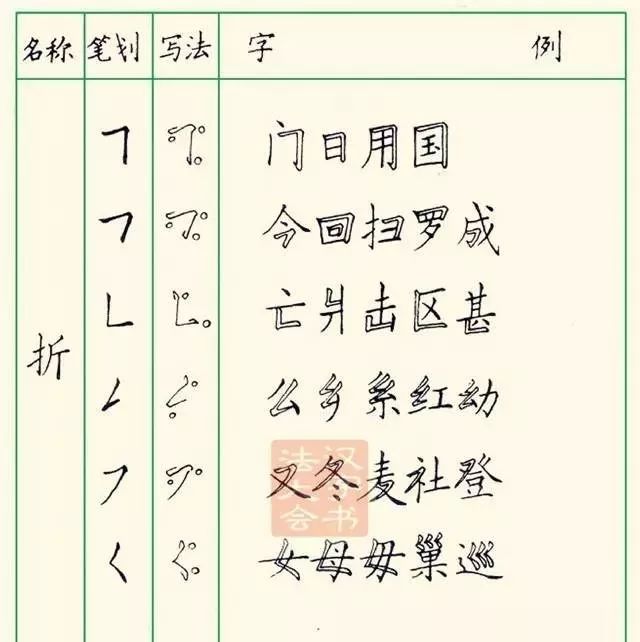 名称 笔划 写法 字 例
门日用国
今回扫罗成
亡爿击区甚
折
么乡系红幼
又冬麦社登
女母毋巢巡
汉字书法大会